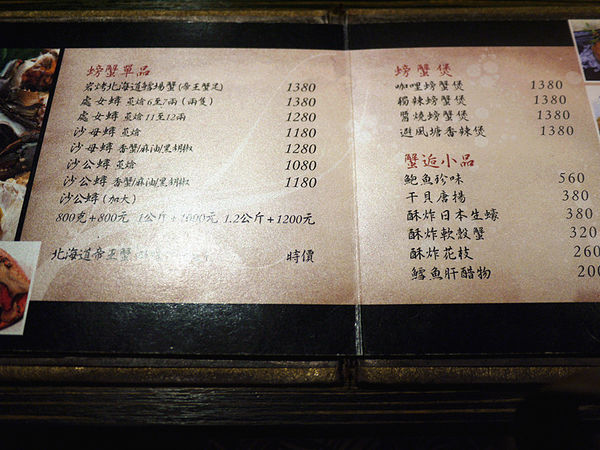 螃蟹單品
岩烤北海道鱈場蟹(帝王蟹足) 1380
處女蟳 蒸燴 6至7兩(兩隻) 1380
處女蟳 蒸燴 11至12兩 1280
沙母蟳 蒸燴 1180
沙母蟳 香蟹/麻油/黑胡椒 1280
沙公蟳 蒸燴 1080
沙公蟳 香蟹/麻油/黑胡椒 1180
沙公蟳(加大)
800克+800元 1公斤+1000元 1.2公斤+1200元
北海道帝王蟹 時價
螃蟹煲
咖哩螃蟹煲 1380
椒辣螃蟹煲 1380
醬燒螃蟹煲 1280
避風塘香辣煲 1380
蟹逅小品
鮑魚珍味 560
干貝唐揚 380
酥炸日本生蠔 380
酥炸軟殼蟹 320
酥炸花枝 260
鱈魚肝醋物 200